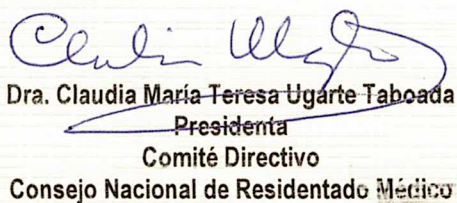 Dra. Claudia María Teresa Ugarte Taboada
Presidenta
Comité Directivo
Consejo Nacional de Residentado Médico